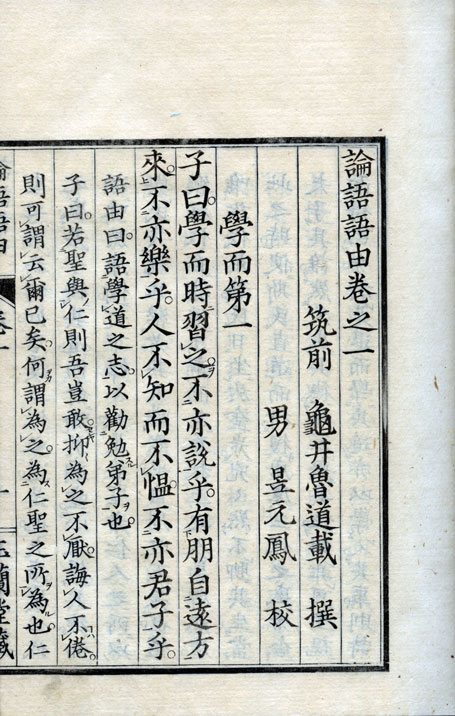 論語語由卷之一
筑前　龜井魯道載　撰
男　昱元鳳　校
學而第一
子曰學而時習之不亦說乎有朋自遠方
來不亦樂乎人不知而不慍不亦君子乎
語由曰語學道之志以勸勉弟子也
子曰若聖與仁則吾豈敢抑為之不厭誨人不倦
則可謂云爾已矣何謂為之為仁聖之所為也仁
論語語由　卷一　一